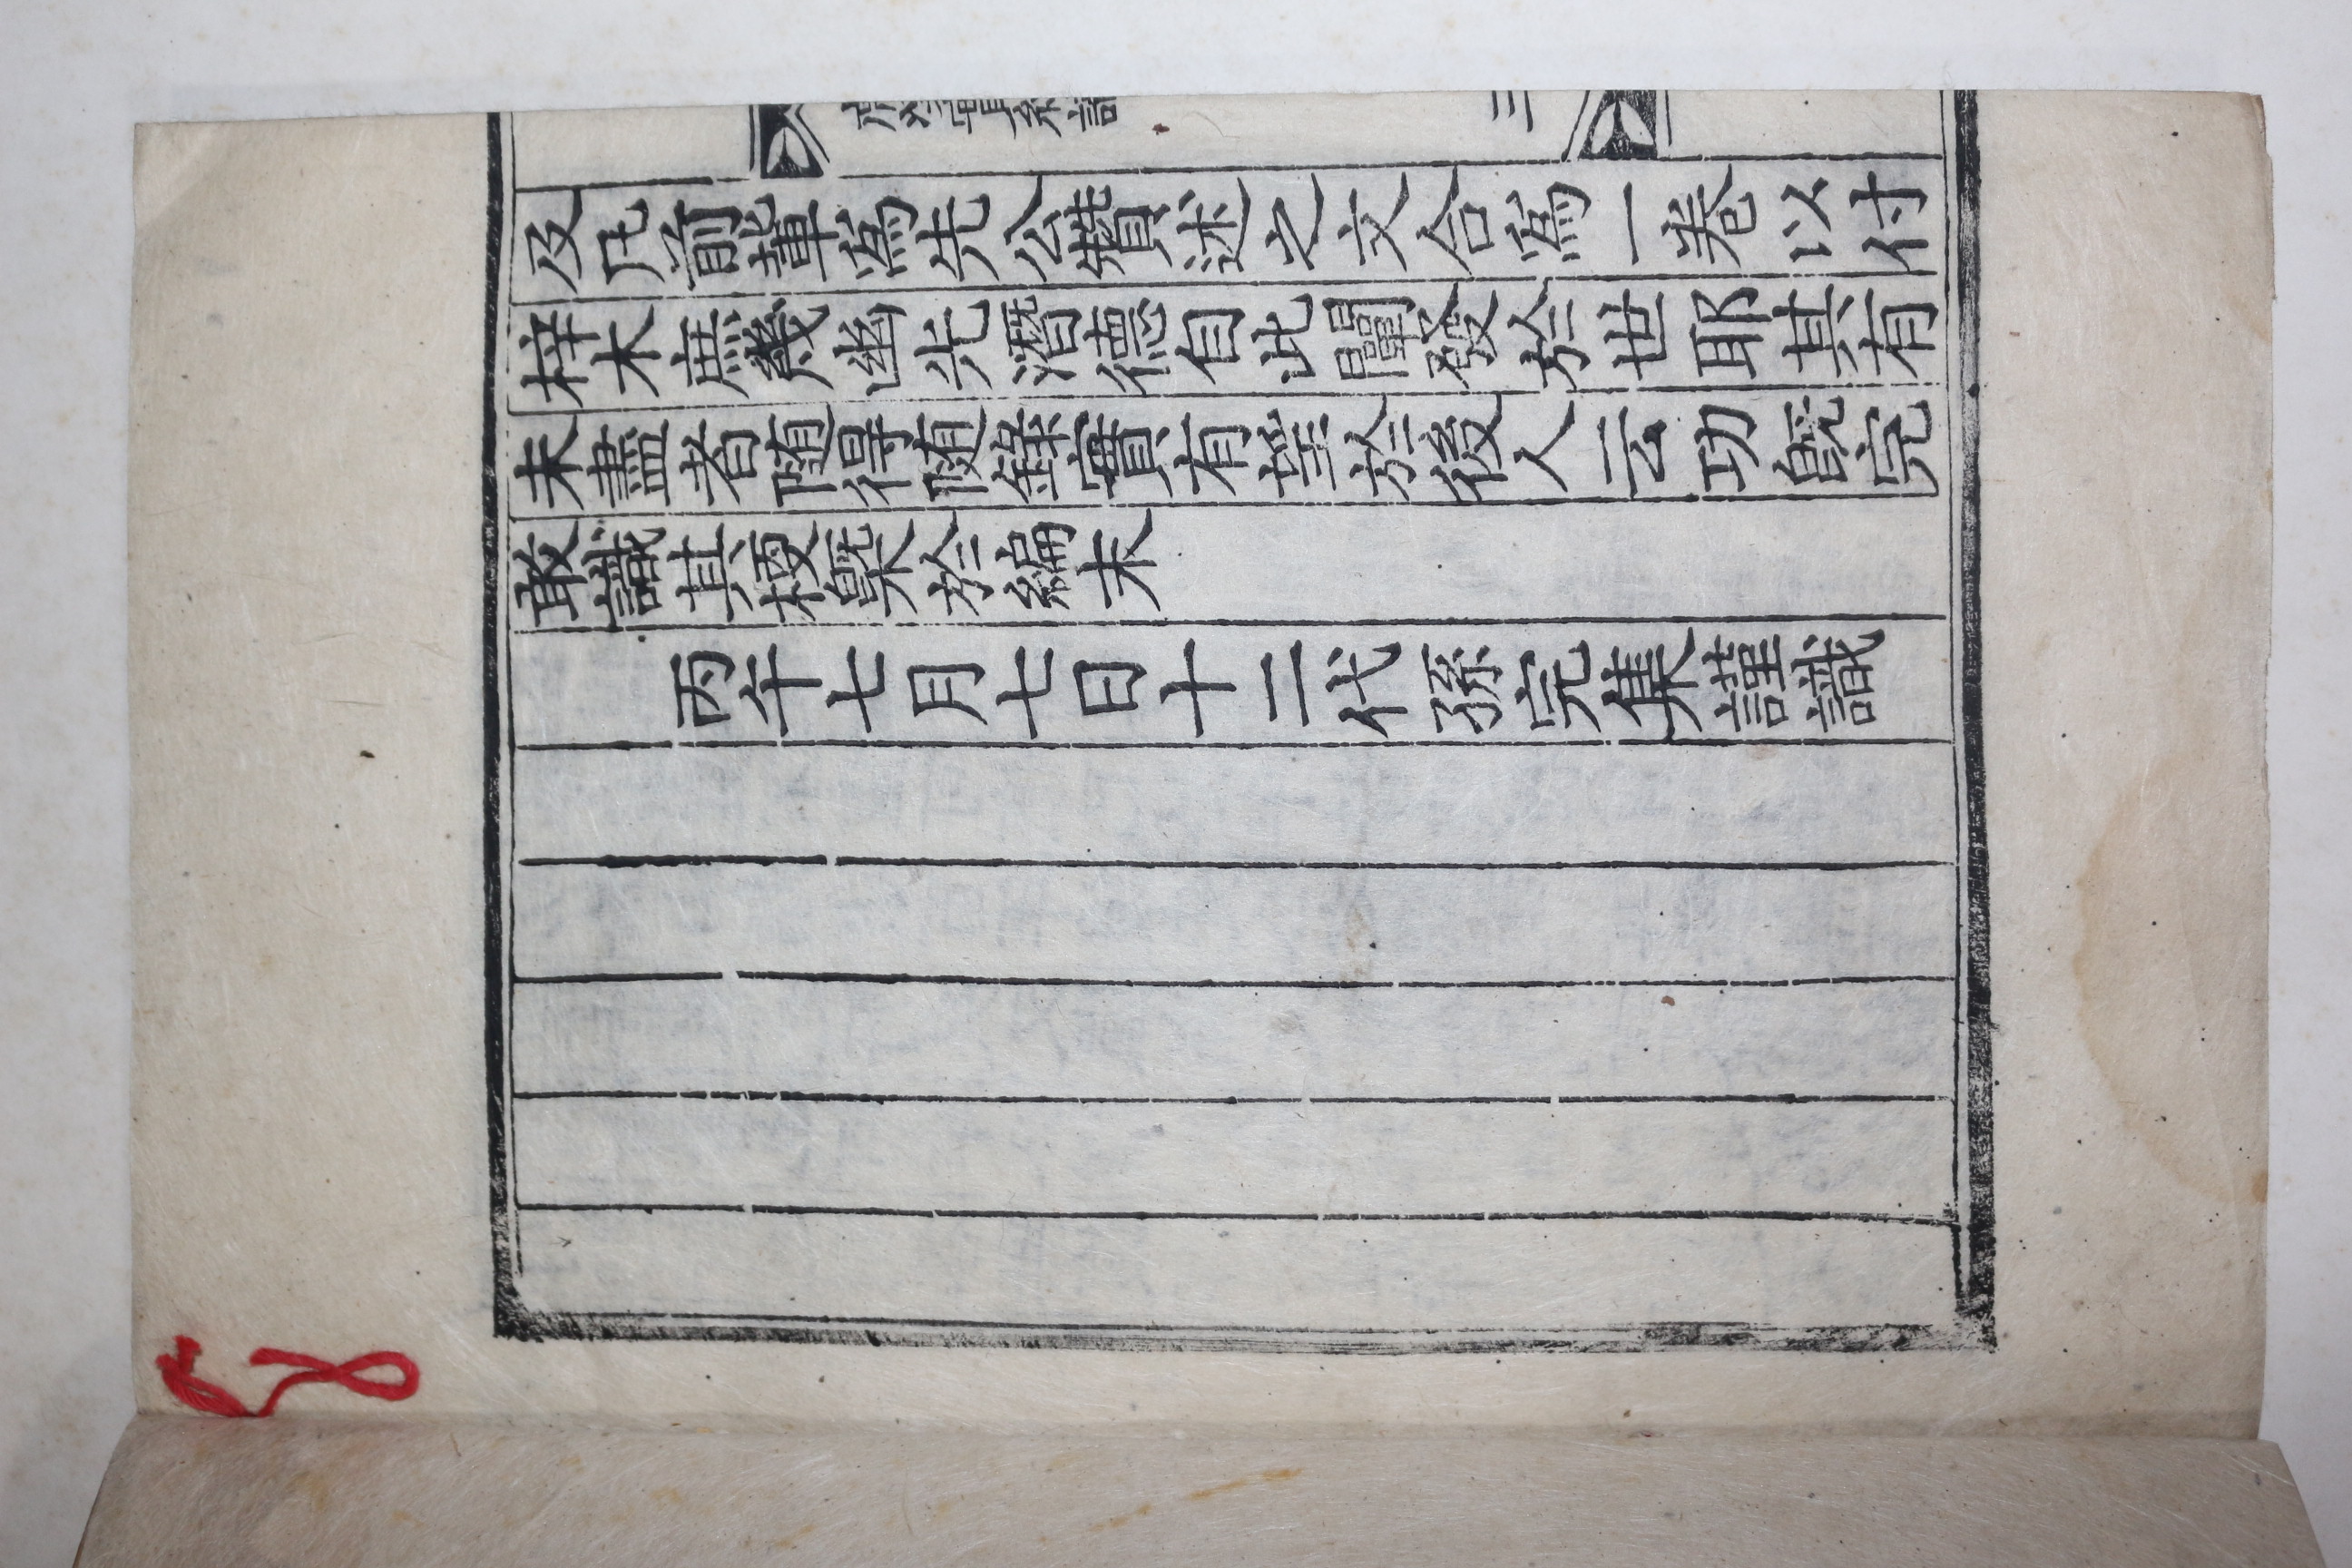 及凡前輩爲先公纘述之文合爲一卷以付
梓木庶幾幽光潛德自此闡發於世耶其有
未盡者隨得隨錄實有望於後人云功旣完
敢識其梗槩於編末
丙午七月七日十二代孫完集謹識